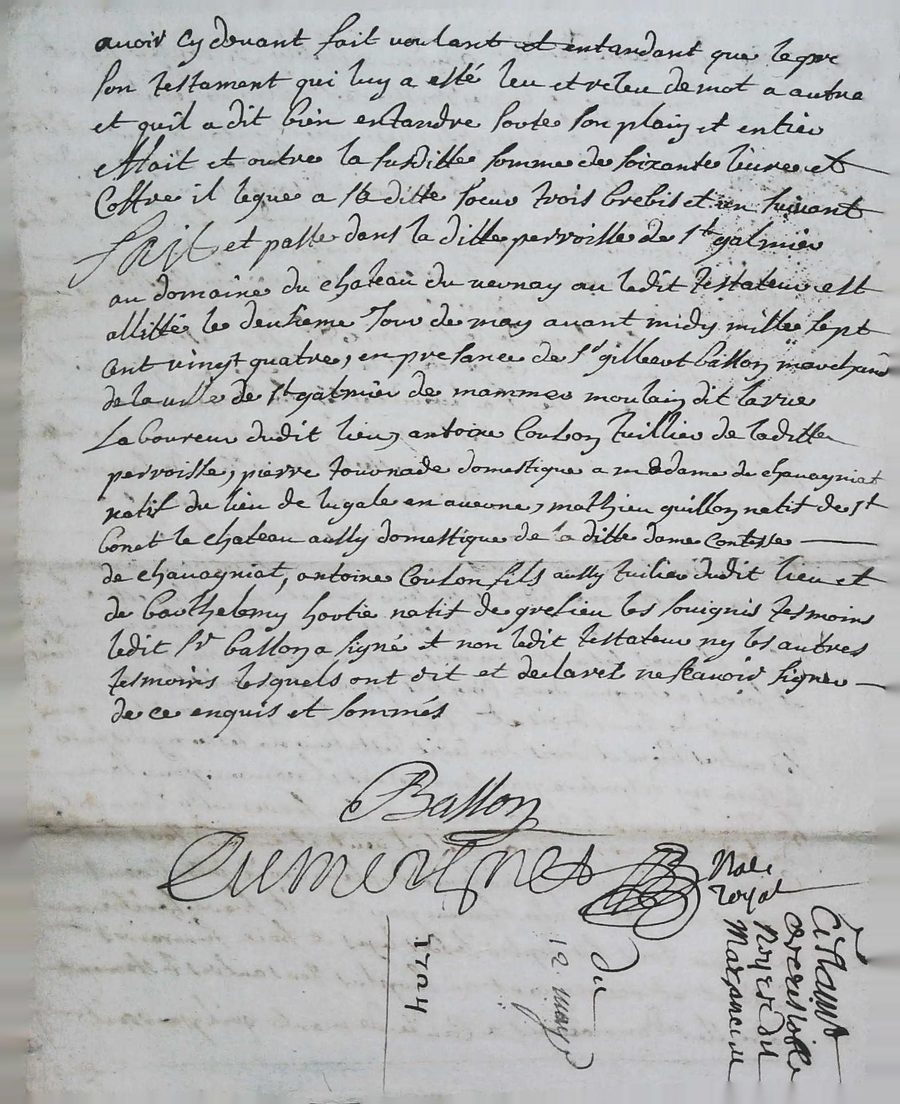 avoir cy devant fait voulant et entandant que le pre
son testament qui luy a esté leu et releu de mot a autre
et quil a dit bien entandre sorte son plain et entier
effait et outre la susditte somme de soixante livres et
Coffre il legue a sa ditte soeur trois brebis et un suivant
fait et passé dans la ditte perroisse de St galmier
au domaine du chateau du vernay au ledit testateur est
allitté le deusieme Jour de may avant midy mille sept
cent vingt quatre, en presance de Sr gilbert basson marchand
de la ville de St galmier de mammer moulain dit larue
Laboureur dudit lieu, antoine Coulon tuillier de laditte
perroisse, pierre tournade domestique a madame de chavagniat
natif du lieu de lugale en auverne, mathieu guillon natif de St
bonet le chateau aussy domestique de la ditte dame Contesse
de chavagniat, antoine Coulon fils aussy tuilier dudit lieu et
de barthelemy hortie natif de grelieu les souignis tesmoins
ledit Sr basson a signé et non ledit testateur ny les autres
tesmoins lesquels ont dit et declaret ne scavoir signer
de ce enquis et sommés
Basson
Nore
royal
du
12 may
1724